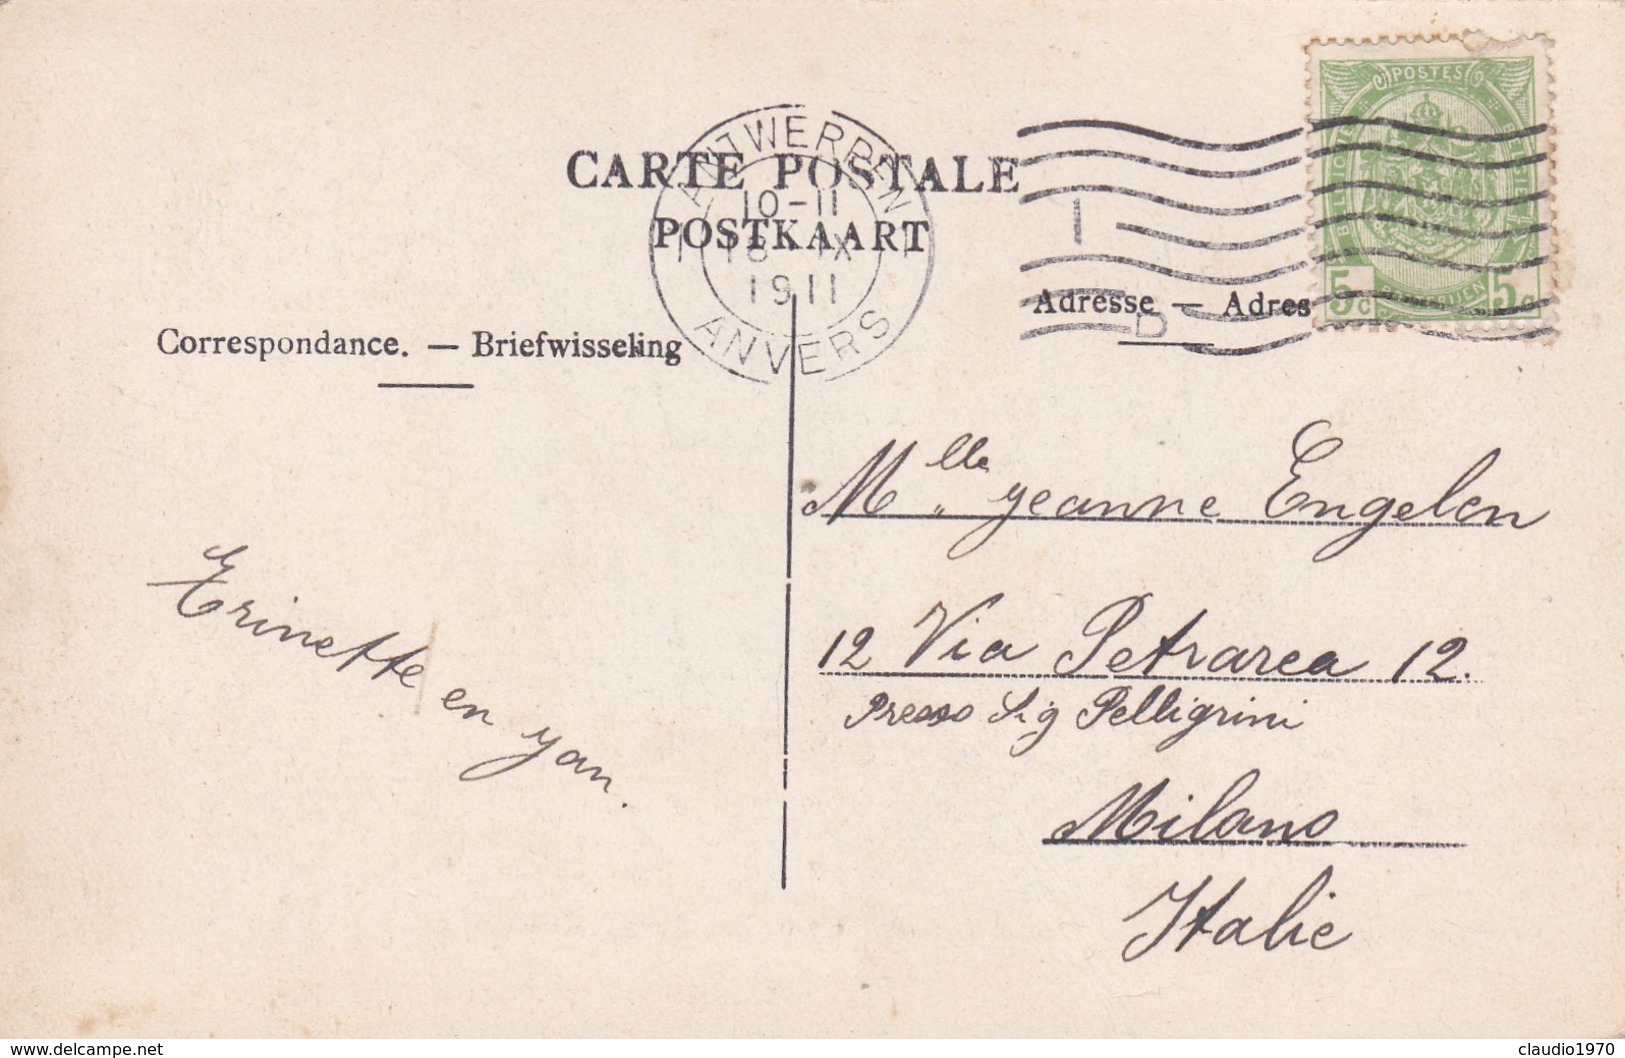 POSTES
BELGIQUE
BELGIË
BELGIEN
5c 5c
ANTWERPEN
CARTE POSTALE
10-11
POSTKAART
IX
1911
ANVERS
I
D
Adresse — Adres
Correspondance. — Briefwisseling
Mlle Jeanne Engelen
12 Via Petrarca 12.
Presso Sig Pelligrini
Milano
Italie
Trinette en Jan.
delcampe.net
claudio1970